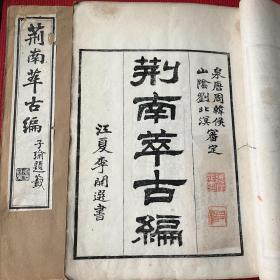 荆南萃古編
子瑜題籤
泉唐周韓侯
山陰劉北溟審定
荆南萃古編
江夏季開選書